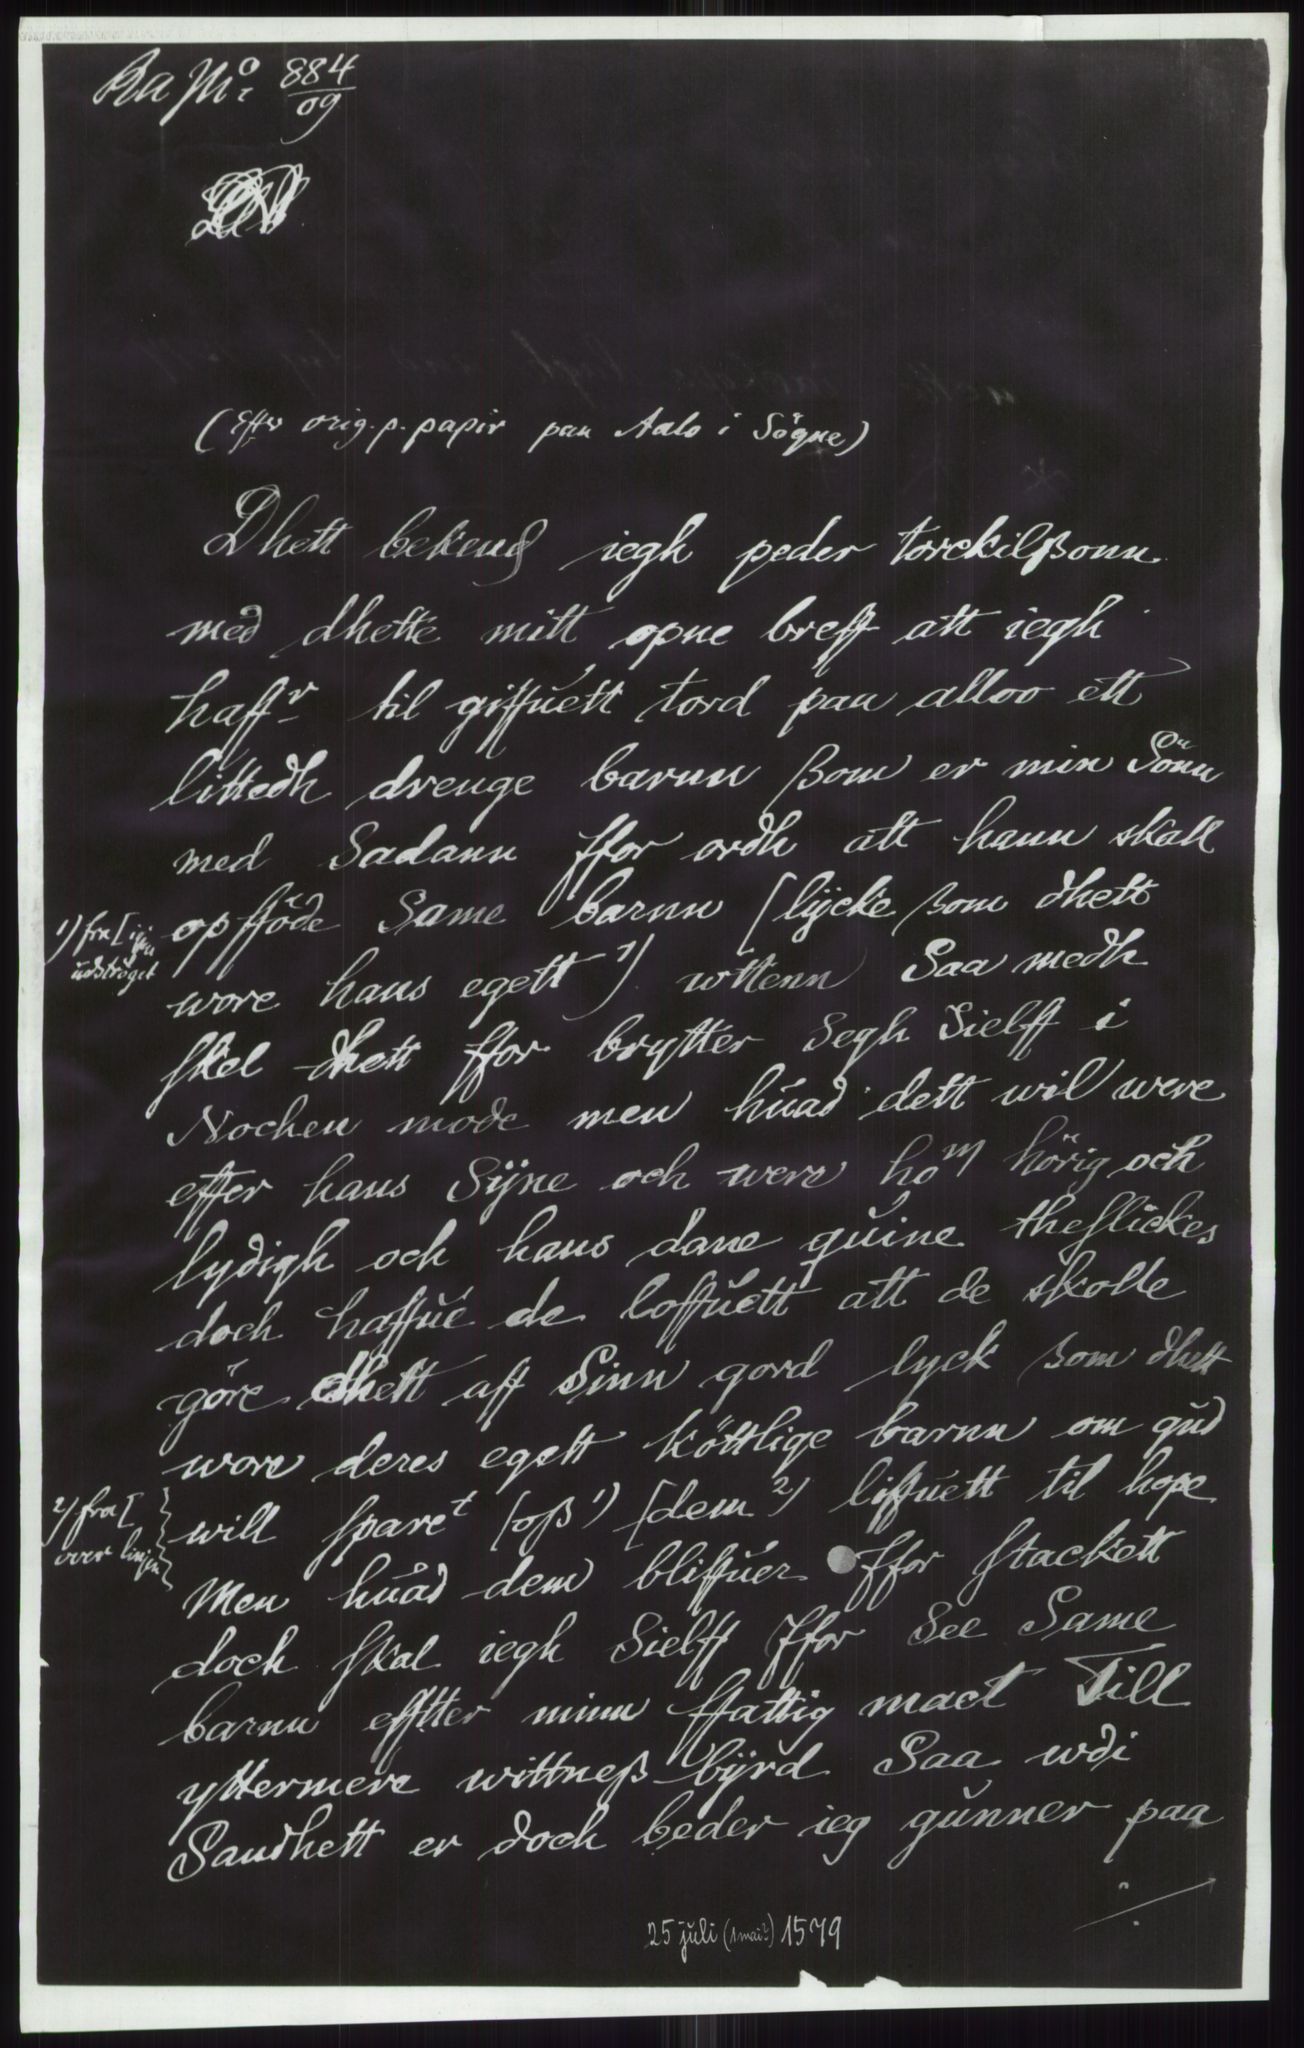 Ra No 884/09
(Efter orig. p. papir paa Aalo i Sögne)
Dhett bekend iegh peder torckilßonn
med dhette mitt opne breff att iegh
haffr til giffuett tord paa alloo ett
littedh drenge barnn ßom er min Sönn
med Sadann ffor ordh att hann skall
opfföde Same barnn [lÿcke ßom dhett
wore hans egett 1) wttenn Saa medh
skel dhett ffor brytter Segh Sielff i
Nochen mode men huad dett wil were
effter hans Sÿne och were hom hörig och
lydigh och hans dane quine theslickes
doch haffue de loffuett att de skolle
göre dhett aff Sinn gord lyck ßom dhett
wore deres egett köttlige barnn om gud
will sparet [oß 1) [dem 2) liffuett til hope
Men huad dem bliffuer ffor stackett
doch skal iegh Sielff ffor See Same
barnn effter minn ffattig mact Till
yttermere wittneß bÿrd Saa wdi
Sandhett er doch beder ieg gunner paa
1) fra [ igjen
udströget
2) fra [
over linjen
25 juli (1 mai?) 1579